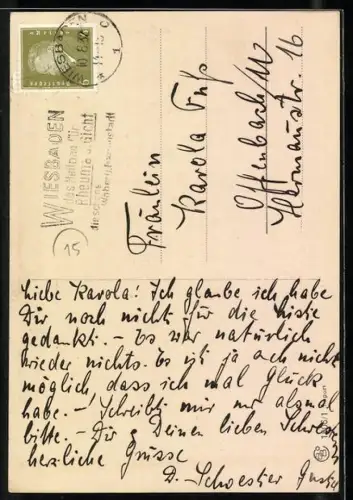 WIESBADEN
10.8.32
WIESBADEN
das Heilbad für
Rheuma u. Gicht
die schöne
15
Fräulein
Karola
Offenbach/M
Hermannstr. 16
Liebe Karola! Ich glaube ich habe
Dir noch nicht für die Kiste
gedankt. – Es war natürlich
wieder nichts. Es ist ja auch nicht
möglich, dass ich mal Glück
habe. – Schreibt mir nur
bitte. – Dir & Deinen lieben
herzliche Grüsse
D. Schwester